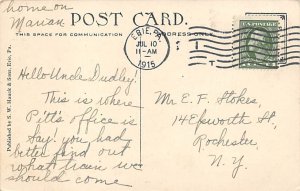 home on
Marian
POST CARD.
THIS SPACE FOR COMMUNICATION
ADDRESS ONLY.
ERIE, PA.
JUL 10
11-AM
1915
Hello Uncle Dudley!
This is where
Pitt's office is
Say! you had
better find out
what train we
should come
Mr. E. F. Stokes,
14 Epworth St,
Rochester,
N. Y.
Published by S. W. Hauck & Sons, Erie, Pa.